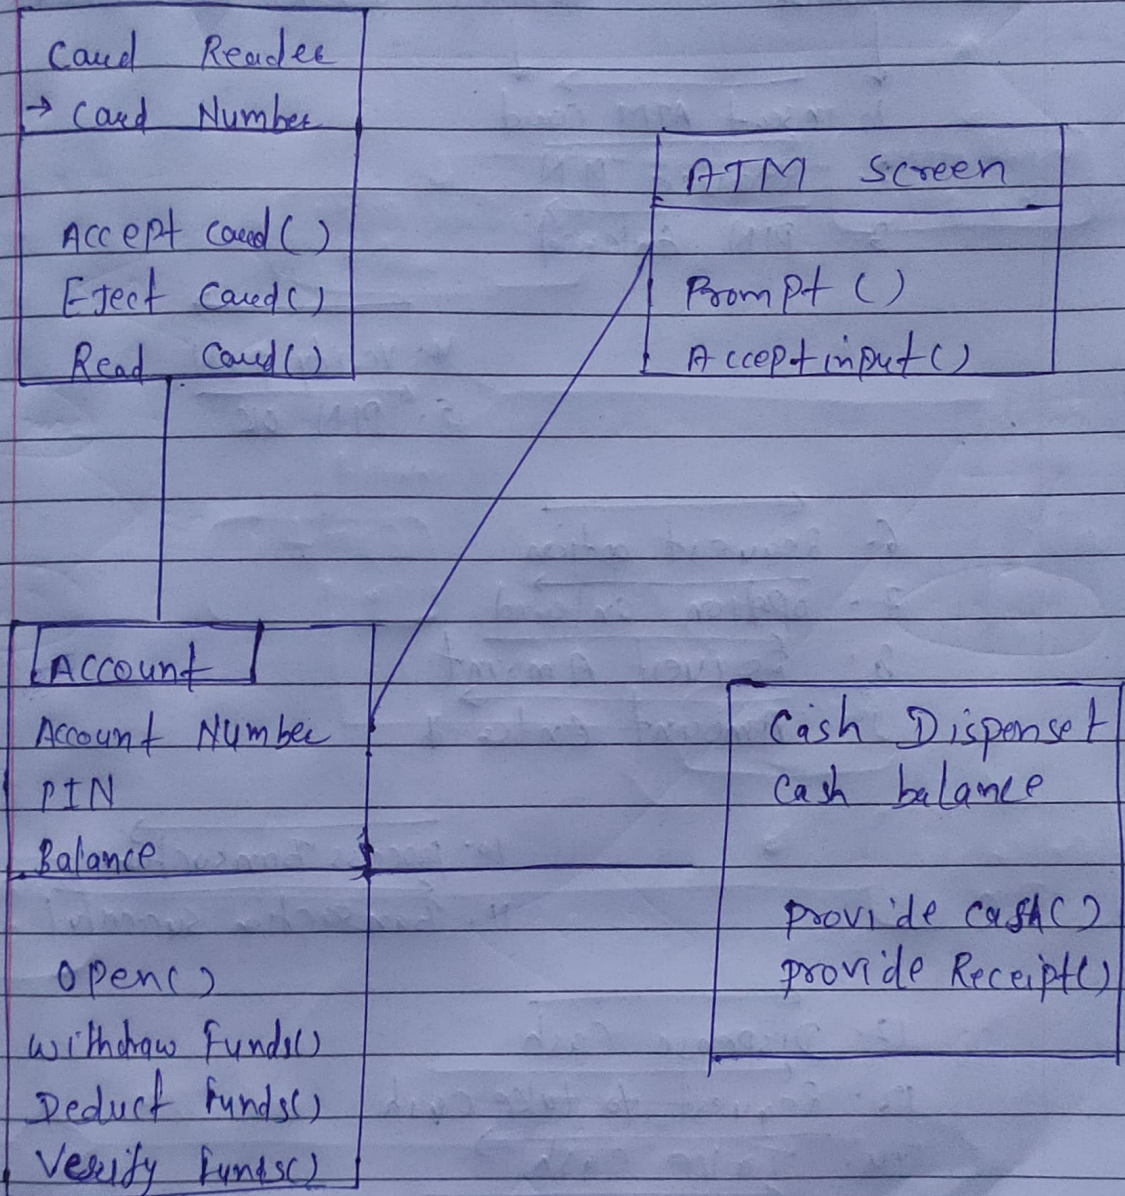 Card Reader
→ Card Number
Accept Card()
Eject Card()
Read Card()
ATM Screen
Prompt ()
Accept input()
Account
Account Number
PIN
Balance
open()
Withdraw Funds()
Deduct Funds()
Verify Funds()
Cash Dispenset
Cash balance
provide cash()
provide Receipt()